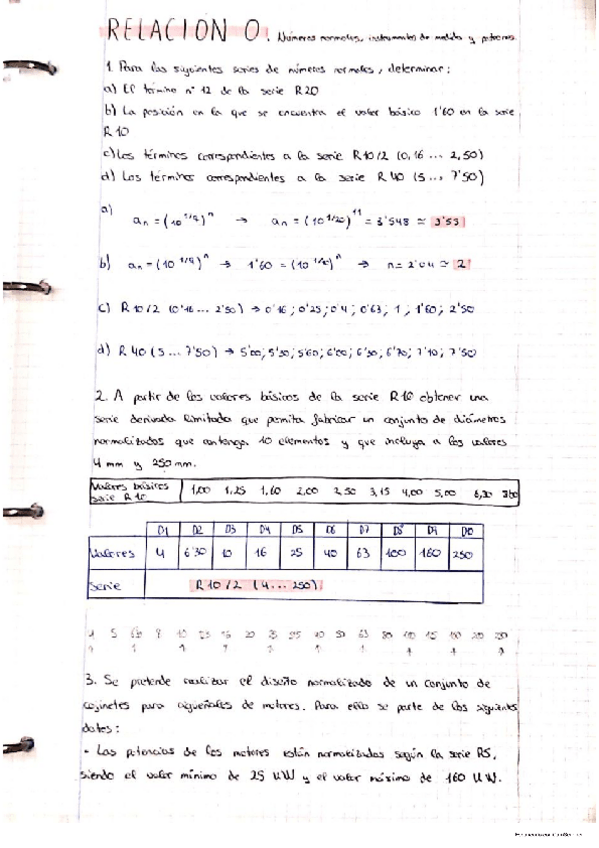 RELACION 0. Números normales, instrumentos de medida y patrones.
1. Para las siguientes series de números normales, determinar:
a) El término nº 12 de la serie R20
b) La posición en la que se encuentra el valor básico 1'60 en la serie
R10
c) Los términos correspondientes a la serie R10/2 (0,16 ... 2,50)
d) Los términos correspondientes a la serie R40 (5 ... 7'50)
a) an = (10^1/q)^n → an = (10^1/20)^11 = 3'548 ≃ 3'55
b) an = (10^1/q)^n → 1'60 = (10^1/10)^n → n = 2'04 ≃ 2
c) R10/2 (0'16 ... 2'50) → 0'16; 0'25; 0'4; 0'63; 1; 1'60; 2'50
d) R40 (5 ... 7'50) → 5'00; 5'30; 5'60; 6'00; 6'30; 6'70; 7'10; 7'50
2. A partir de los valores básicos de la serie R10 obtener una
serie derivada limitada que permita fabricar un conjunto de diámetros
normalizados que contenga 10 elementos y que incluya a los valores
4 mm y 250 mm.
Valores básicos serie R10 1,00 1,25 1,60 2,00 2,50 3,15 4,00 5,00 6,30 8,00
D1 D2 D3 D4 D5 D6 D7 D8 D9 D10
Valores 4 6'30 10 16 25 40 63 100 160 250
Serie R10/2 (4 ... 250)
3. Se pretende realizar el diseño normalizado de un conjunto de
cojinetes para cigüeñales de motores. Para ello se parte de los siguientes
datos:
- Las potencias de los motores están normalizadas según la serie R5,
siendo el valor mínimo de 25 kW y el valor máximo de 160 kW.